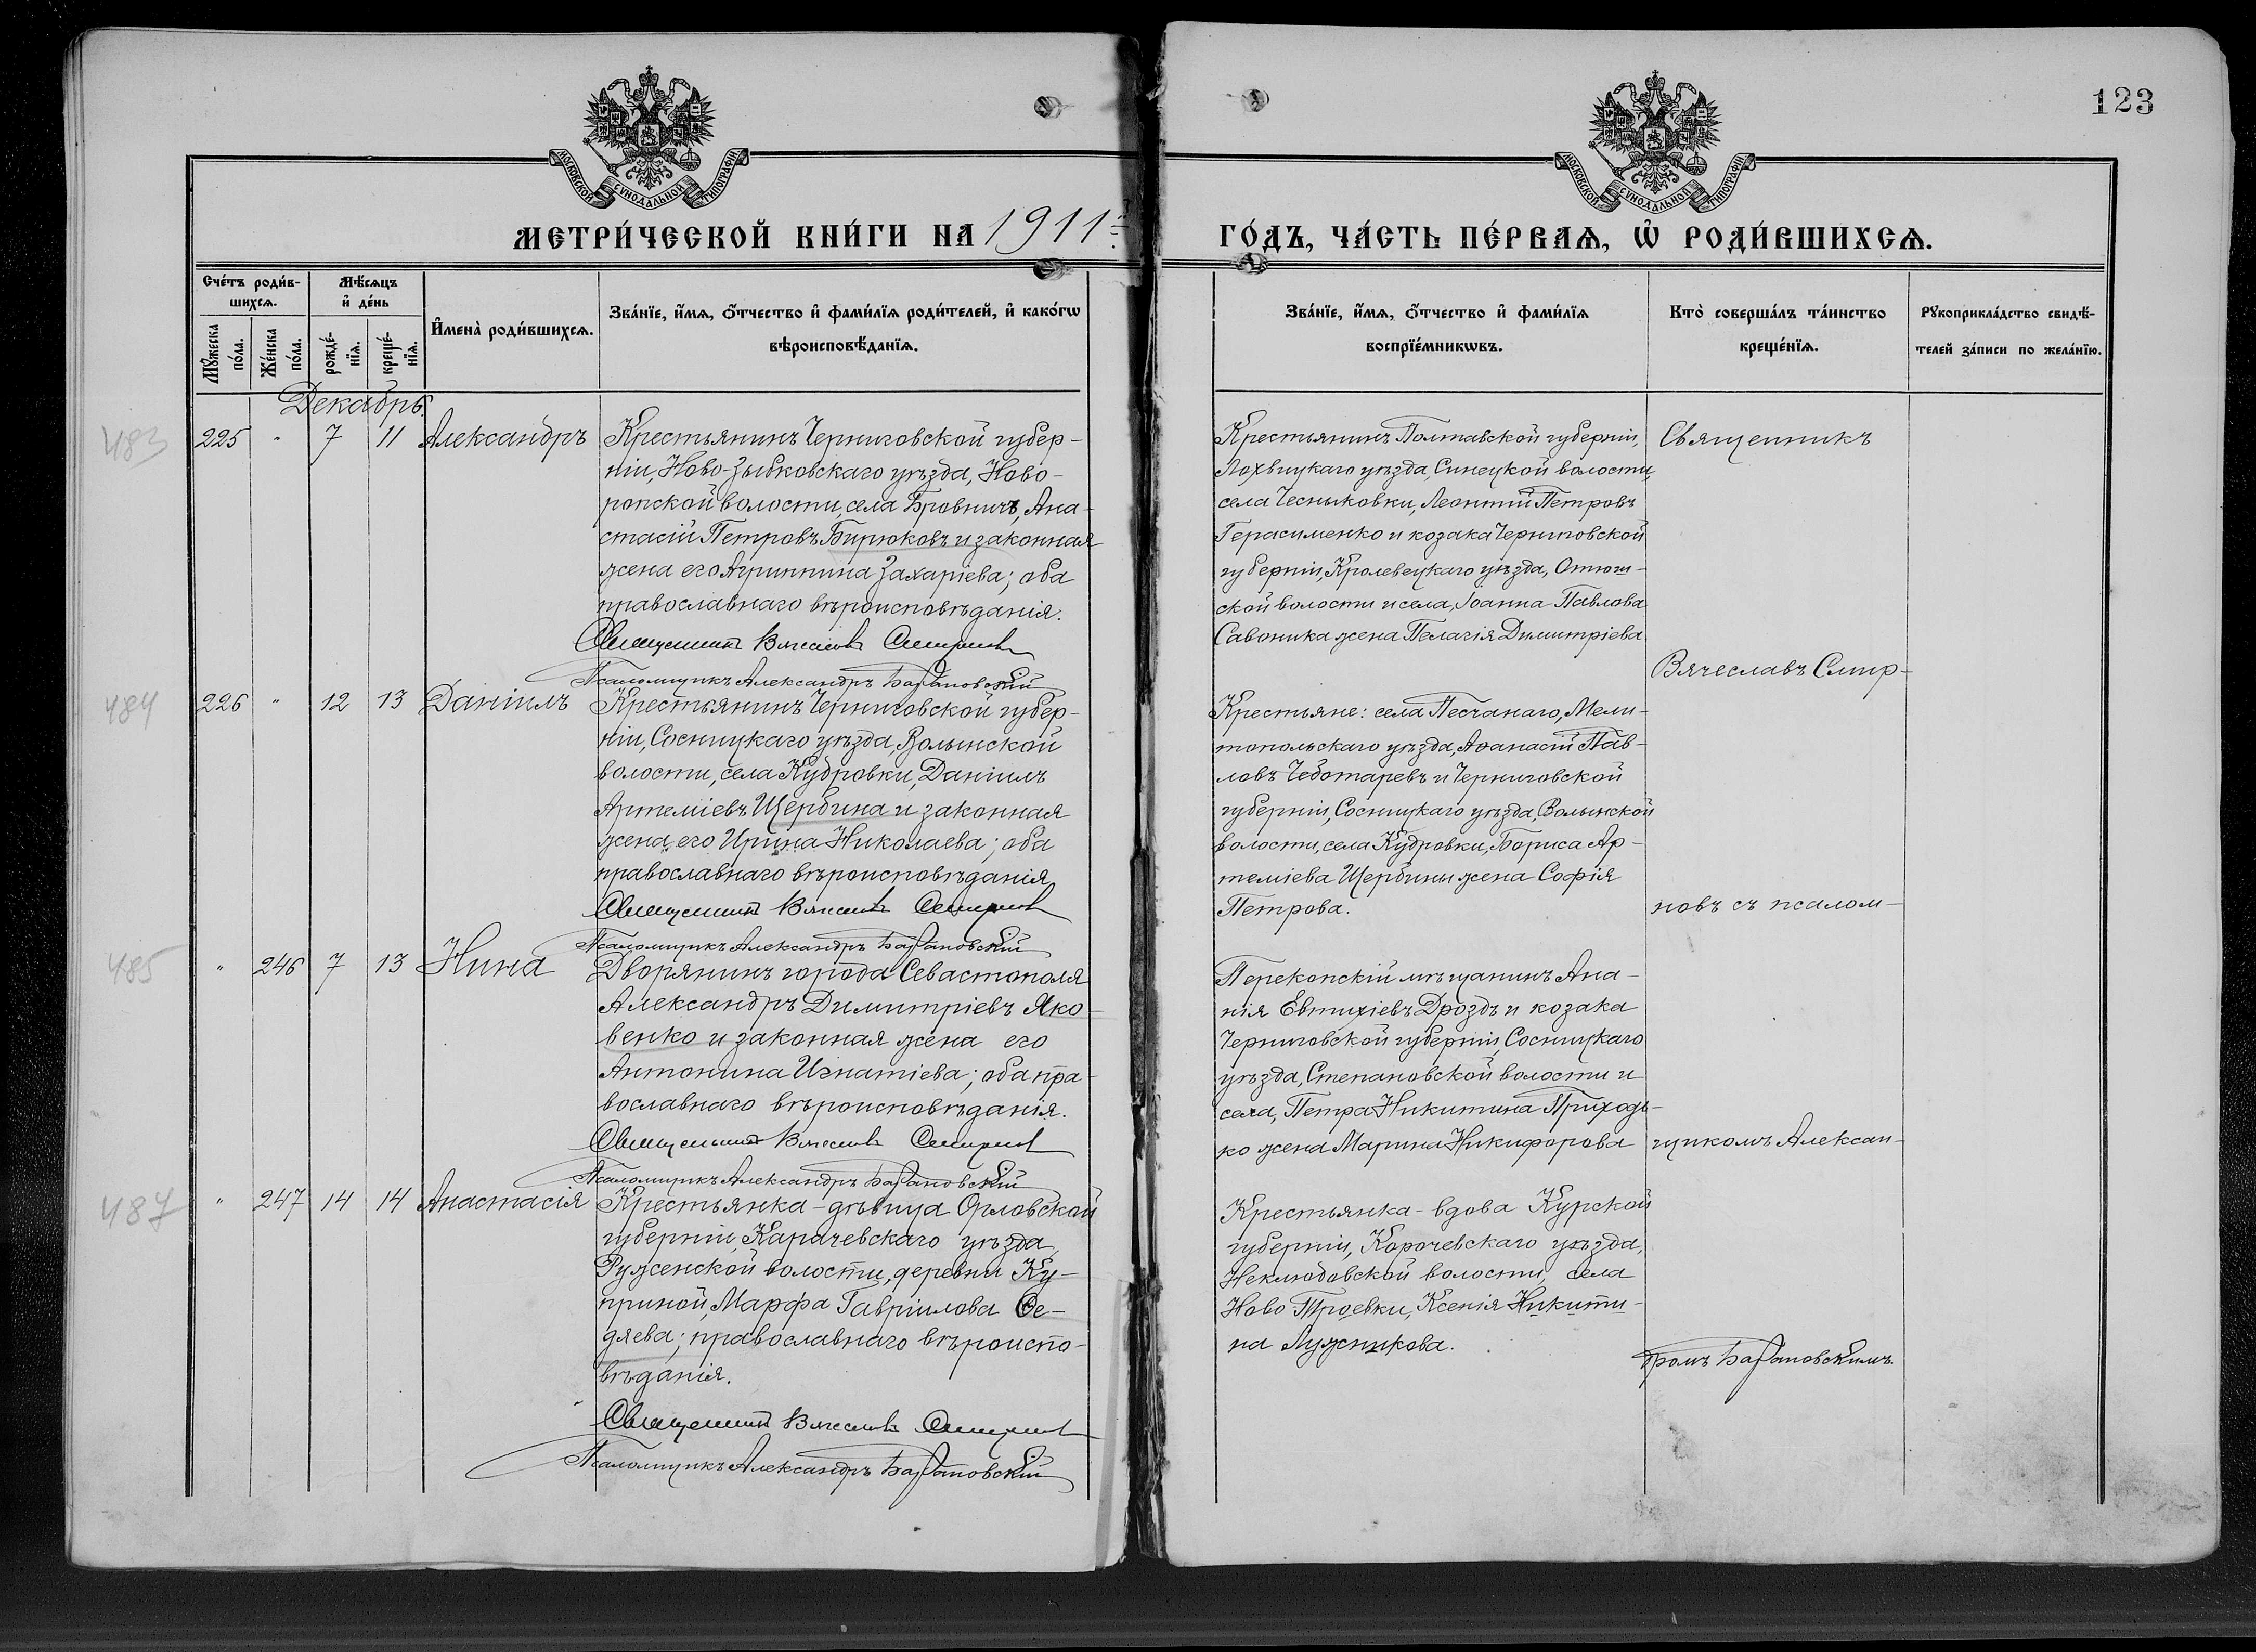 123
МОСКОВСКОЙ СѴНОДАЛЬНОЙ ТИПОГРАФІИ
МОСКОВСКОЙ СѴНОДАЛЬНОЙ ТИПОГРАФІИ
МЕТРИ́ЧЕСКОЙ КНИ́ГИ НА 1911й
ГО́ДЪ, ЧА́СТЬ ПЕ́РВАѦ, Ѽ РОДИ́ВШИХСѦ.
Сче́тъ роди́в-
шихсѧ.
Мꙋ́жеска
по́ла.
Же́нска
по́ла.
Мѣ́сѧцъ
и҆ де́нь
рожде́-
нїѧ.
креще́-
нїѧ.
И҆мена̀ роди́вшихсѧ.
Зва́нїе, и҆́мѧ, ѻ҆́тчество и҆ фами́лїѧ роди́телей, и҆ како́гѡ
вѣроисповѣ́данїѧ.
Зва́нїе, и҆́мѧ, ѻ҆́тчество и҆ фами́лїѧ
воспрїе́мникѡвъ.
Кто̀ соверша́лъ та́инство
креще́нїѧ.
Рꙋкоприкла́дство свидѣ́-
телей за́писи по жела́нїю.
Декабрь.
483 225 " 7 11 Александръ
Крестьянинъ Черниговской губер-
ніи, Ново-Зыбковскаго уѣзда, Ново-
ропской волости, села Бровничъ, Ана-
стасій Петровъ Бирюковъ и законная
жена его Агриппина Захаріева; оба
православнаго вѣроисповѣданія.
Священникъ Вячеславъ Смирновъ
Псаломщикъ Александръ Барановскій
Крестьянинъ Полтавской губерніи,
Лохвицкаго уѣзда, Синецкой волости,
села Чесныковки, Леонтій Петровъ
Герасименко и козака Черниговской
губерніи, Кролевецкаго уѣзда, Оттюш-
ской волости и села, Іоанна Павлова
Савоника жена Пелагія Димитріева.
484 226 " 12 13 Даніилъ
Крестьянинъ Черниговской губер-
ніи, Сосницкаго уѣзда, Волынской
волости, села Кудровки, Даніилъ
Артеміевъ Щербина и законная
жена его Ирина Николаева; оба
православнаго вѣроисповѣданія
Священникъ Вячеславъ Смирновъ
Псаломщикъ Александръ Барановскій
Крестьяне: села Песчанаго, Мели-
топольскаго уѣзда, Аѳанасій Пав-
ловъ Чеботаревъ и Черниговской
губерніи, Сосницкаго уѣзда, Волынской
волости, села Кудровки, Бориса Ар-
теміева Щербины жена Софія
Петрова.
485 " 246 7 13 Нина
Дворянинъ города Севастополя
Александръ Димитріевъ Яко-
венко и законная жена его
Антонина Игнатіева; оба пра-
вославнаго вѣроисповѣданія.
Священникъ Вячеславъ Смирновъ
Псаломщикъ Александръ Барановскій
Перекопскій мѣщанинъ Ана-
нія Евтихіевъ Дроздъ и козака
Черниговской губерніи, Сосницкаго
уѣзда, Степановской волости и
села, Петра Никитина Приходь-
ко жена Марина Никифорова
487 " 247 14 14 Анастасія
Крестьянка-дѣвица Орловской
губерніи, Карачевскаго уѣзда,
Руженской волости, деревни Ку-
приной, Марфа Гавріилова Ѳе-
дяева; православнаго вѣроиспо-
вѣданія.
Священникъ Вячеславъ Смирновъ
Псаломщикъ Александръ Барановскій
Крестьянка-вдова Курской
губерніи, Корочевскаго уѣзда,
Неклюдовской волости, села
Ново Троевки, Ксенія Никити-
на Лужникова.
Священникъ
Вячеславъ Смир-
новъ съ псалом-
щикомъ Алексан-
дромъ Барановскимъ.